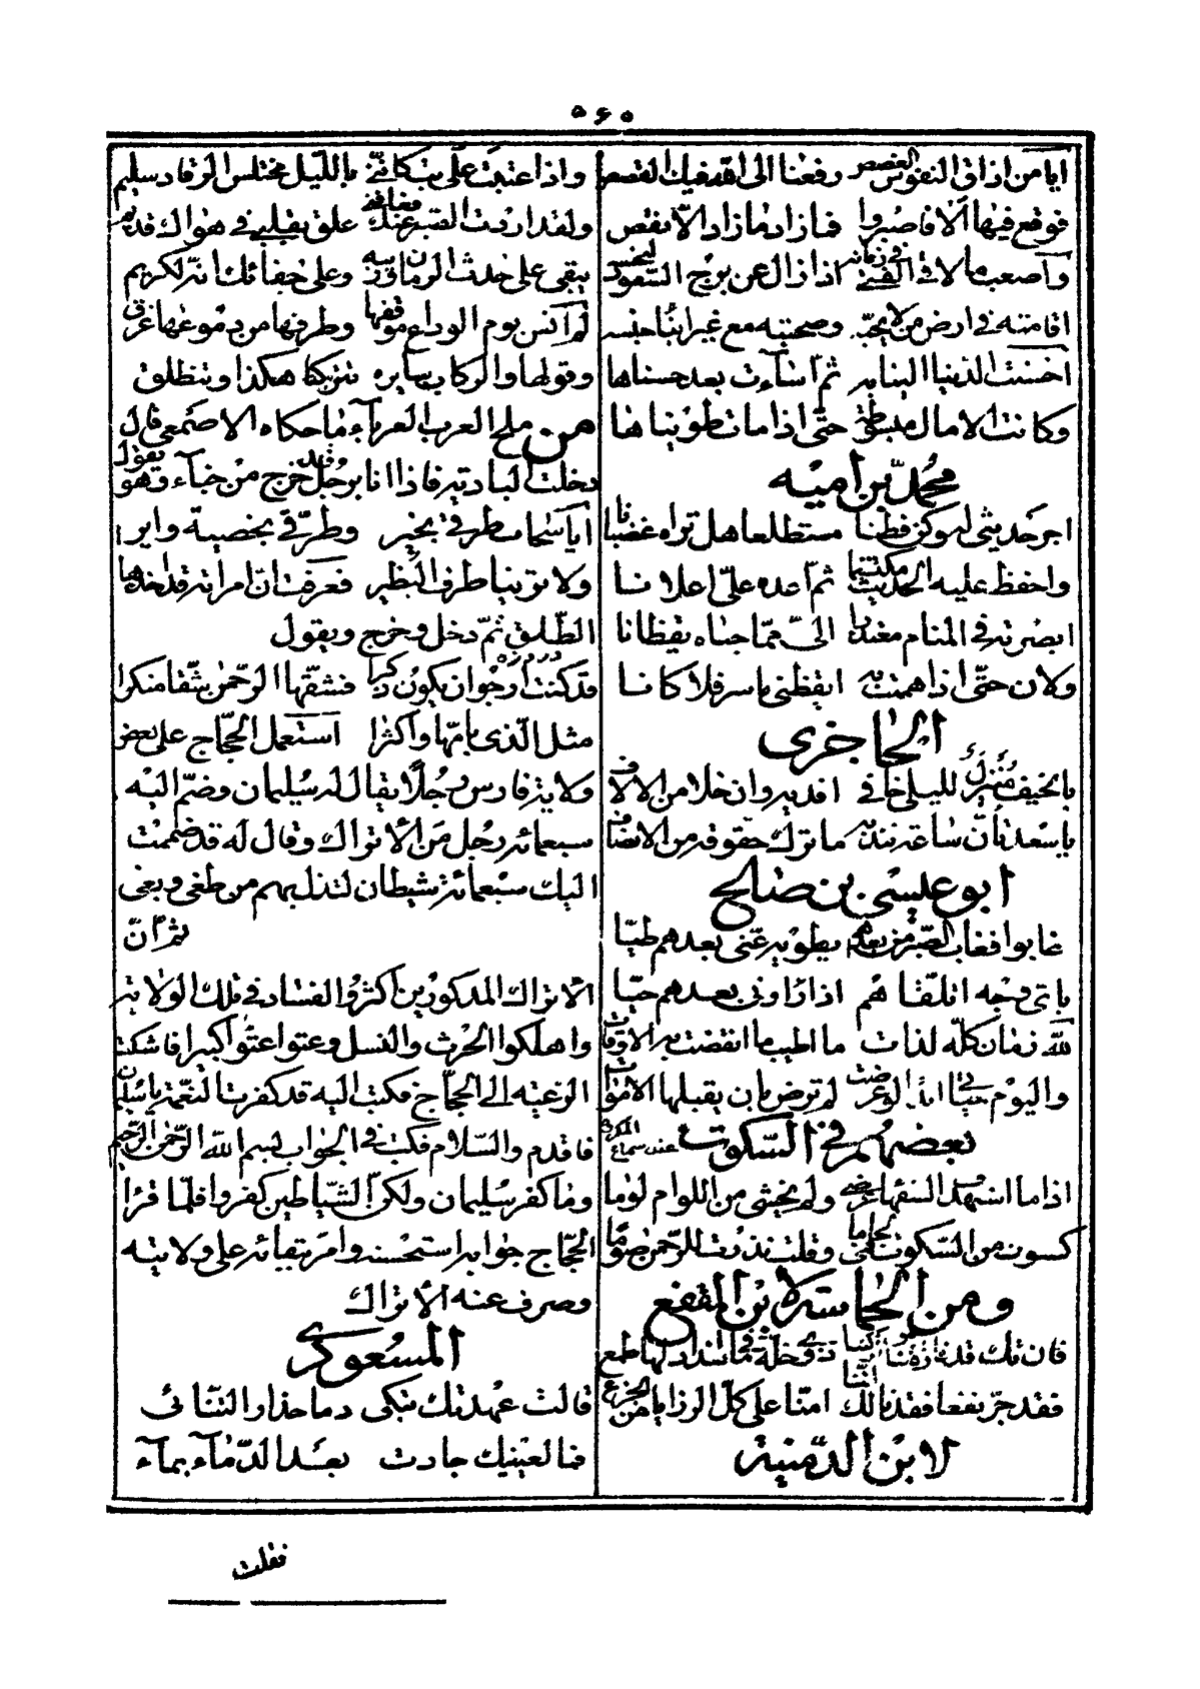 ٥٦٥
ايا من اذاق النفوس الغصص رفعنا الى اقد فيك القصص
فوقع فيها ألا فاصبروا فما زاد ما زاد الا نقص
وأصعب ما لاقى الفتى في زمانه اذا زال عن برج السعود لنحسه
اقامته في ارض من لا يحبه وصحبته مع غير ابناء جنسه
احسنت الدنيا الينا بهم ثم أساءت بعد حسناها
وكانت الامال مبسوطة حتى اذا ما تطويناها
محمد بن اميه
اجر حديثي لهو كن فطنا مستطلعا هل تراه غضبانا
واحفظ عليه الحديث مكتتما ثم أعده علي اعلانا
ابصرته في المنام معتذرا الي مما جناه يقظانا
ولان حتى اذا هممت به ايقظني ياسر فلا كانا
الحاجري
بالخيف منزل لليلى خافي افديه وان خلا من الالاف
يا سعد تأن ساعة نندبه ما نترك حقوقه من الانصاف
ابو عيسى بن صالح
غابوا فغاب الصبر من بعدهم يطويه عني بعدهم طيا
باي وجه اتلقاهم اذا رأوني بعدهم حيا
لله زمان كله لذات ما اطيب ما انقضت به الاوقات
واليوم لو عرضت لم ترض بان يقبلها الاموات
بعضهم في السكوت عند سماع المكروه
اذا ما استهدف السفهاء عرضي ولم يخشى من اللوام لوما
كسوت من السكوت في لجاما وقلت نذرت للرحمن صوما
ومن الحماسة لابن المقفع
فان تك قد فارقتنا وتركتنا ذوي خلة ما في انسداد لها طمع
فقد جر نفعا فقدنا لك اننا امنا على كل الرزايا من الجزع
لابن الدمنية
واذا عتبت علي بت كانني بالليل مختلس الرقاد سليم
ولقد اردت الصبر عنك فعاقني علق بقلبي في هواك قديم
يبقى على حدث الزمان وريبه وعلى جفائك انه لكريم
لم أنس يوم الوداع موقفها وطرفها من دموعها غرق
وقولها والركاب سايره تتركنا هكذا وتنطلق
من ملح العرب العرباء ما حكاه الاصمعي قال
دخلت البادية فاذا انا برجل قد خرج من خباء وهو يقول
أيا سحاب طرقي بخير وطرقي بخصية واير
ولا ترينا طرف البظير فعرفت ان امراته قد اخذها
الطلق ثم دخل وخرج ويقول
قد كنت ارجو ان يكون ذكرا فشقها الرحمن شقا منكرا
مثل الذي بامها وأكثرا استعمل الحجاج على بعض
ولاية فارس رجلا يقال له سليمان وضم اليه
سبعمائة رجل من الأتراك وقال له قد ضممت
اليك سبعمائة شيطان لتذل بهم من طغى وبغى
ثم ان
الاتراك المذكورين أكثروا الفساد في تلك الولاية
واهلكوا الحرث والنسل وعتوا عتوا كبيرا فاشكت
الرعية الى الحجاج فكتب اليه قد كفرت النعمة يا سليمان
فاقدم والسلام فكتب في الجواب بسم الله الرحمن الرحيم
وما كفر سليمان ولكن الشياطين كفروا فلما قرأ
الحجاج جوابه استحسنه وامر ببقائه على ولايته
وصرف عنه الأتراك
المسعودي
قالت عهدتك تبكي دما حذار التنائي
فما لعينيك جادت بعد الدماء بماء
فقلت